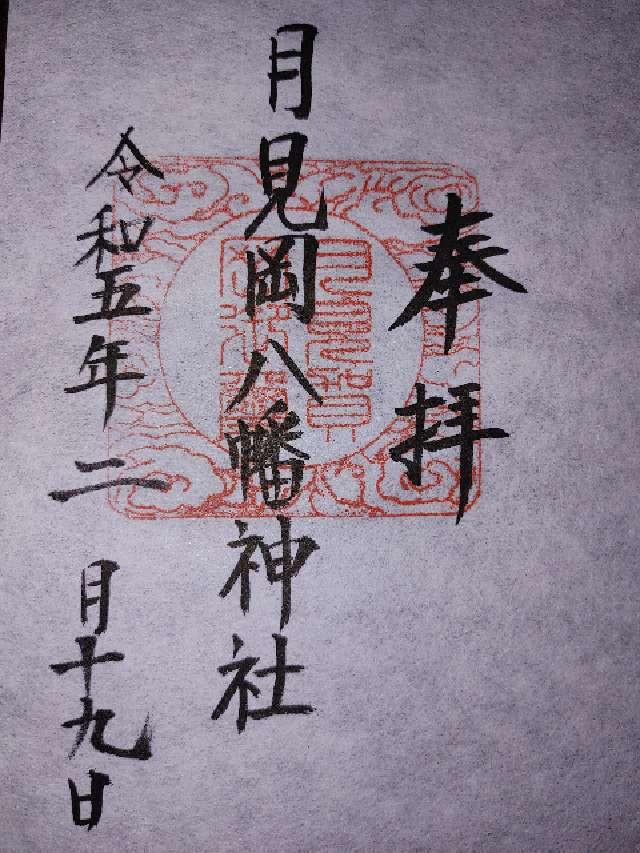 奉拝
月見岡八幡神社
令和五年二月十九日